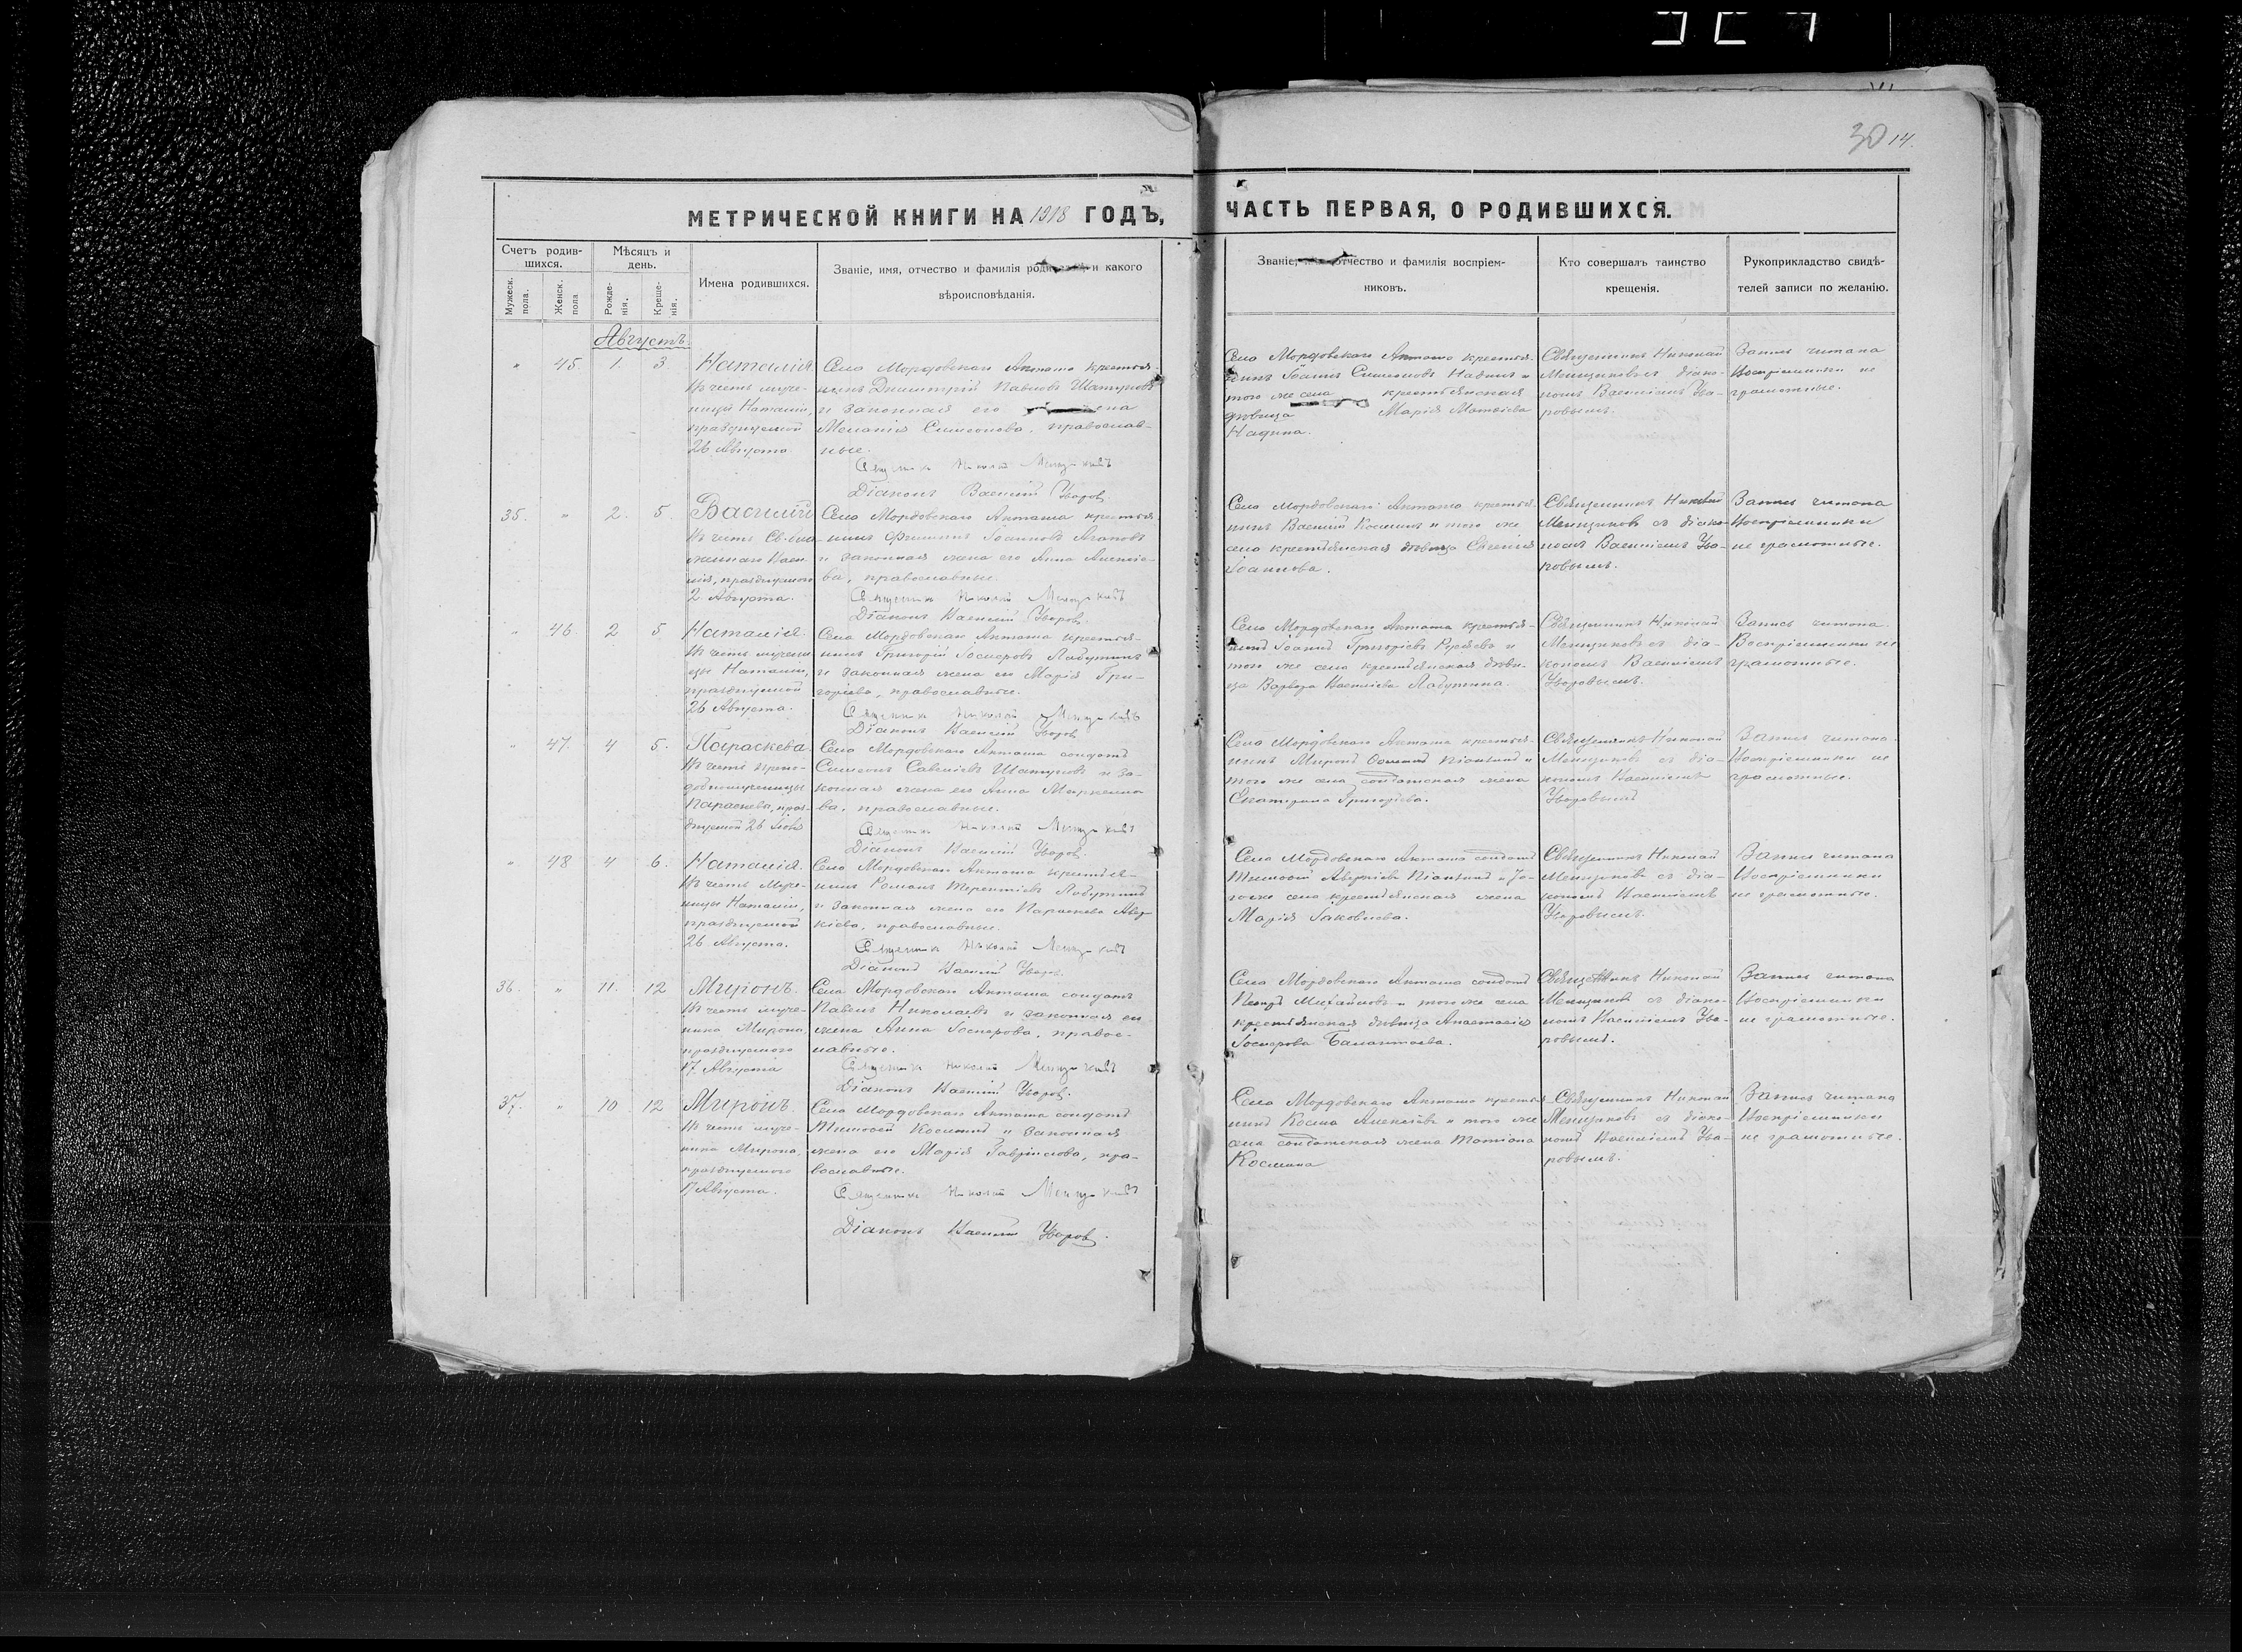 30 14.
МЕТРИЧЕСКОЙ КНИГИ НА 1918 ГОДЪ,
ЧАСТЬ ПЕРВАЯ, О РОДИВШИХСЯ.
Счетъ родив-
шихся.
Мужеск. пола.
Женск. пола
Мѣсяцъ и
день.
Рожде-
нія.
Креще-
нія.
Имена родившихся.
Званіе, имя, отчество и фамилія и какого
вѣроисповѣданія.
Званіе, отчество и фамилія воспріем-
никовъ.
Кто совершалъ таинство
крещенія.
Рукоприкладство свидѣ-
телей записи по желанію.
Августъ.
" 45. 1. 3. Наталія
Въ честь муче-
ницы Наталіи,
празднуемой
26 Августа.
Села Мордовскаго Акташа крестья-
нинъ Димитрій Павловъ Шатуновъ
и законная его
Меланія Симеонова, православ-
ные.
Священникъ Николай
Діаконъ Василій Уваровъ
Села Мордовскаго Акташа крестья-
нинъ Іоаннъ Симеоновъ Надинъ и
того же села крестьянская
дѣвица Марія Матвѣева
Надина.
Священникъ Николай
Менщиковъ съ діако-
номъ Василіемъ Ува-
ровымъ.
Запись читана
Воспріемники не
грамотные.
35. " 2. 5. Василій
Въ честь Св. бла-
женнаго Васи-
лія, празднуемаго
2 Августа.
Села Мордовскаго Акташа крестья-
нинъ Филиппъ Іоанновъ Агаповъ
и законная жена его Анна Алексѣе-
ва, православные.
Священникъ Николай
Діаконъ Василій Уваровъ.
Села Мордовскаго Акташа крестья-
нинъ Василій Косминъ и того же
села крестьянская дѣвица Евгенія
Іоаннова.
Священникъ Николай
Менщиковъ съ діако-
номъ Василіемъ Ува-
ровымъ.
Запись читана
Воспріемники
не грамотные.
" 46. 2 5. Наталія.
Въ честь мучени-
цы Наталіи,
празднуемой
26 Августа.
Села Мордовскаго Акташа крестья-
нинъ Григорій Іосифовъ Лабутинъ
и законная жена его Марія Гри-
горіева, православные.
Священникъ Николай
Діаконъ Василій Уваровъ
Села Мордовскаго Акташа крестья-
нинъ Іоаннъ Григоріевъ и
того же села крестьянская дѣви-
ца Варвара Василіева Лабутина.
Священникъ Николай
Менщиковъ съ діа-
кономъ Василіемъ
Уваровымъ.
Запись читана.
Воспріемники не
грамотные.
" 47. 4 5. Параскева.
Въ честь препо-
добномученицы
Параскевы, праз-
днуемой 26 Іюля
Села Мордовскаго Акташа солдатъ
Симеонъ Савеліевъ Шатуновъ и за-
конная жена его Анна
ва, православные.
Священникъ Николай
Діаконъ Василій Уваровъ.
Села Мордовскаго Акташа крестья-
нинъ Миронъ и
того же села солдатская жена
Екатерина Григоріева.
Священникъ Николай
Менщиковъ съ діа-
кономъ Василіемъ
Уваровымъ
Запись читана.
Воспріемники не
грамотные.
" 48 4 6. Наталія.
Въ честь муче-
ницы Наталіи,
празднуемой
26 Августа.
Села Мордовскаго Акташа крестья-
нинъ Романъ Терентіевъ Лабутинъ
и законная жена его Параскева Авер-
кіева, православные.
Священникъ Николай
Діаконъ Василій Уваровъ.
Села Мордовскаго Акташа солдатъ
Тимофей Аверкіевъ и то-
гоже села крестьянская жена
Марія Іаковлева.
Священникъ Николай
Менщиковъ съ діа-
кономъ Василіемъ
Уваровымъ.
Запись читана
Воспріемники
не грамотные.
36. " 11. 12 Миронъ.
Въ честь муче-
ника Мирона,
празднуемаго
17 Августа
Села Мордовскаго Акташа солдатъ
Павелъ Николаевъ и законная его
жена Анна Іосифова, правос-
лавные.
Священникъ Николай
Діаконъ Василій Уваровъ.
Села Мордовскаго Акташа солдатъ
Петръ Михайловъ и того же села
крестьянская дѣвица Анастасія
Іосифова
Священникъ Николай
Менщиковъ съ діако-
номъ Василіемъ Ува-
ровымъ.
Запись читана
Воспріемники
не грамотные.
37. " 10 12 Миронъ.
Въ честь муче-
ника Мирона,
празднуемаго
17 Августа.
Села Мордовскаго Акташа солдатъ
Тимофей Косминъ и законная
жена его Марія Гавріилова, пра-
вославные.
Священникъ Николай
Діаконъ Василій Уваровъ.
Села Мордовскаго Акташа крестья-
нинъ Косма Алексѣевъ и того же
села солдатская жена Татіана
Космина
Священникъ Николай
Менщиковъ съ діако-
номъ Василіемъ Ува-
ровымъ.
Запись читана
Воспріемники
не грамотные.